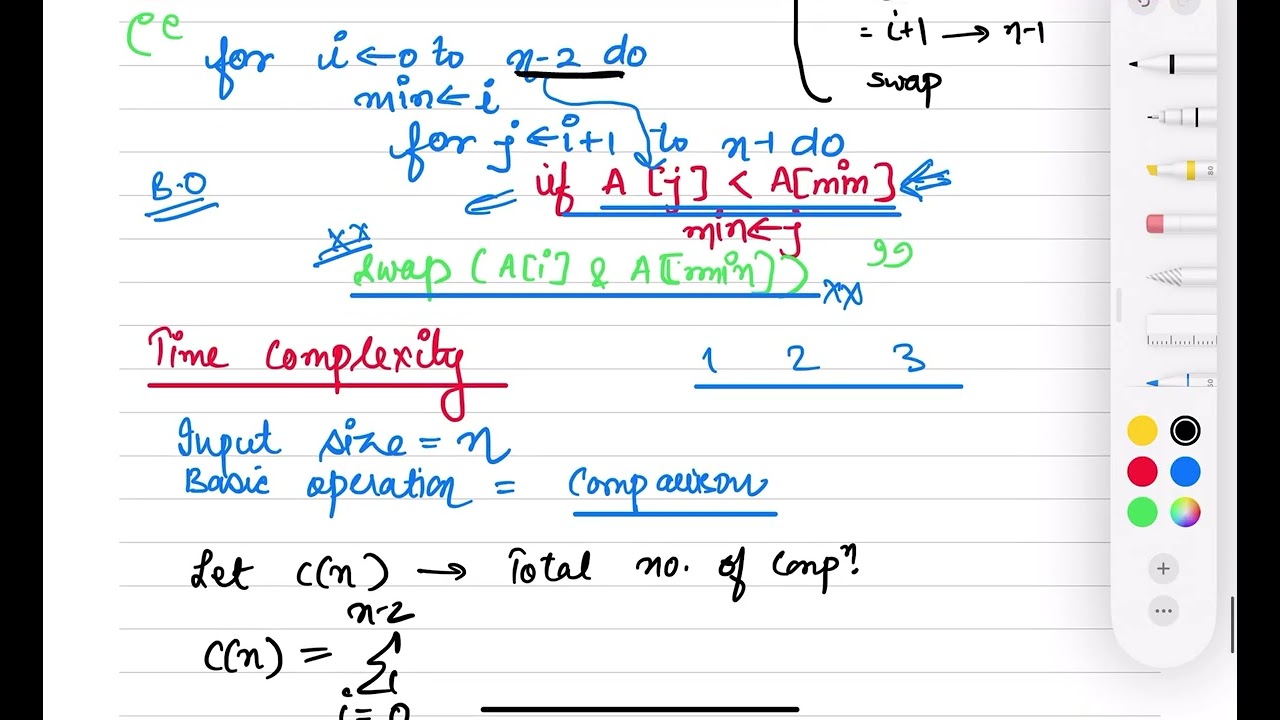 = i+1 → n-1
swap
“
for i ← 0 to n-2 do
min ← i
for j ← i+1 to n-1 do
if A[j] < A[min]
B.O
min ← j
xx
Swap (A[i] & A[min]) ”
xx
Time complexity
1 2 3
Input size = n
Basic operation = Comparison
Let C(n) → Total no. of compⁿ.
n-2
C(n) = Σ
i = 0